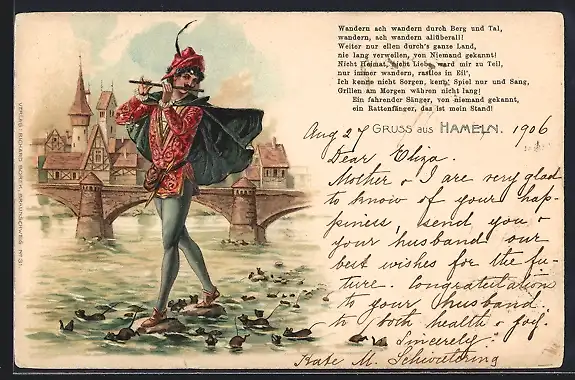 Wandern ach wandern durch Berg und Tal,
wandern, ach wandern allüberall!
Weiter nur eilen durch's ganze Land,
nie lang verweilen, von Niemand gekannt!
Nicht Heimat, nicht Liebe ward mir zu Teil,
nur immer wandern, rastlos in Eil',
Ich kenne nicht Sorgen, kenn' Spiel nur und Sang,
Grillen am Morgen währen nicht lang!
Ein fahrender Sänger, von niemand gekannt,
ein Rattenfänger, das ist mein Stand!
GRUSS aus HAMELN.
Aug 27 1906
Dear Eliza.
Mother & I are very glad
to know of your hap-
piness, send you &
your husband our
best wishes for the fu-
ture. Congratulation
to your husband.
to both health & joy.
Sincerely
Kate M. Schwietering
VERLAG: RICHARD BORCK, BRAUNSCHWEIG Nº 31.